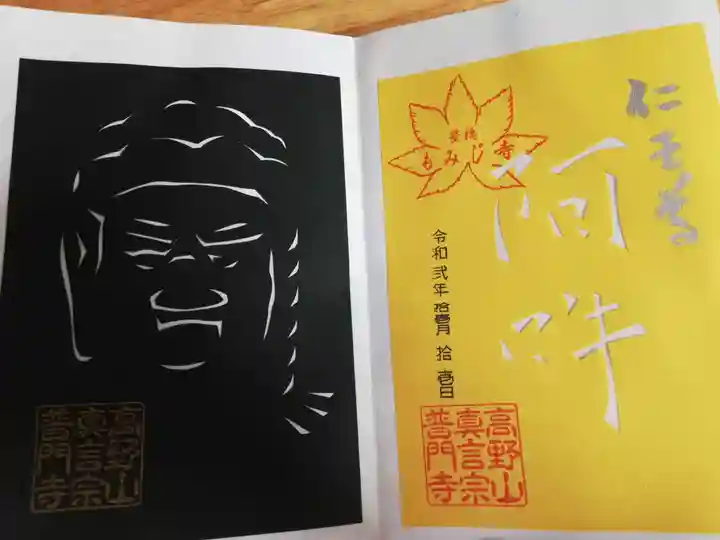 仁王尊
阿吽
豊橋
もみじ寺
令和弐年 拾壹月 拾壹日
高野山
真言宗
普門寺
高野山
真言宗
普門寺